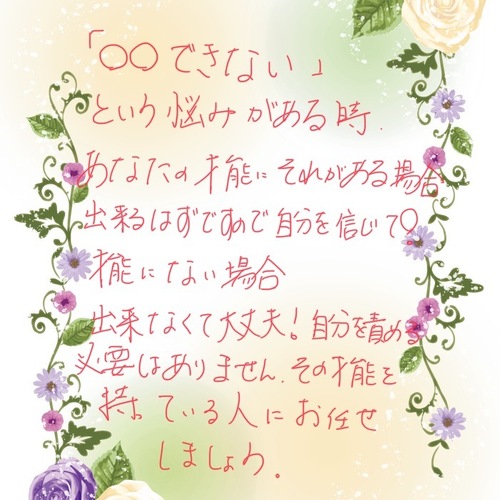 「○○できない」
という悩みがある時.
あなたの才能にそれがある場合
出来るはずですので自分を信じて♡
才能にない場合
出来なくて大丈夫！自分を責める
必要はありません.その才能を
持っている人にお任せ
しましょう。